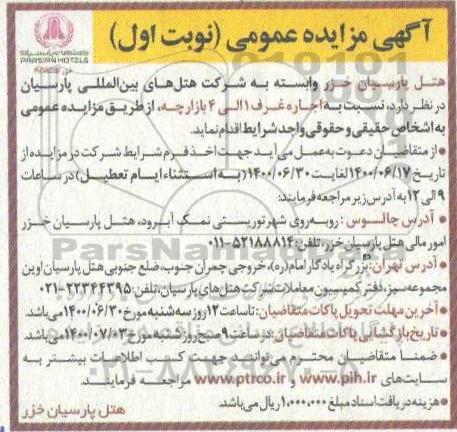 آگهی مزایده عمومی (نوبت اول)
PARSIAN HOTELS
هتل پارسیان خزر وابسته به شرکت هتل‌های بین‌المللی پارسیان
در نظر دارد، نسبت به اجاره غرف ۱ الی ۴ بازارچه، از طریق مزایده عمومی
به اشخاص حقیقی و حقوقی واجد شرایط اقدام نماید.
• از متقاضیان دعوت به عمل می‌آید جهت اخذ فرم شرایط شرکت در مزایده از
تاریخ ۱۴۰۰/۰۶/۱۷ لغایت ۱۴۰۰/۰۶/۳۰ (به استثناء ایام تعطیل) در ساعات
۹ الی ۱۲ به آدرس زیر مراجعه فرمایند:
• آدرس چالوس: روبه‌روی شهر توریستی نمک آبرود، هتل پارسیان خزر
امور مالی هتل پارسیان خزر، تلفن: ۵۲۱۸۸۸۱۴-۰۱۱
• آدرس تهران: بزرگراه یادگار امام (ره)، خروجی چمران جنوب، ضلع جنوبی هتل پارسیان اوین
مجموعه سبز، دفتر کمیسیون معاملات شرکت هتل‌های پارسیان، تلفن: ۲۲۳۴۴۳۹۵-۰۲۱
• آخرین مهلت تحویل پاکات متقاضیان: تا ساعت ۱۲ روز سه شنبه مورخ ۱۴۰۰/۰۶/۳۰ می‌باشد
• تاریخ بازگشایی پاکات متقاضیان: در ساعت ۹ صبح روز شنبه مورخ ۱۴۰۰/۰۷/۰۳ می‌باشد
• ضمنا متقاضیان محترم می‌توانند جهت کسب اطلاعات بیشتر به
سایت‌های www.pih.ir و www.ptrco.ir مراجعه فرمایند.
• هزینه دریافت اسناد مبلغ ۱,۰۰۰,۰۰۰ ریال می‌باشد.
هتل پارسیان خزر